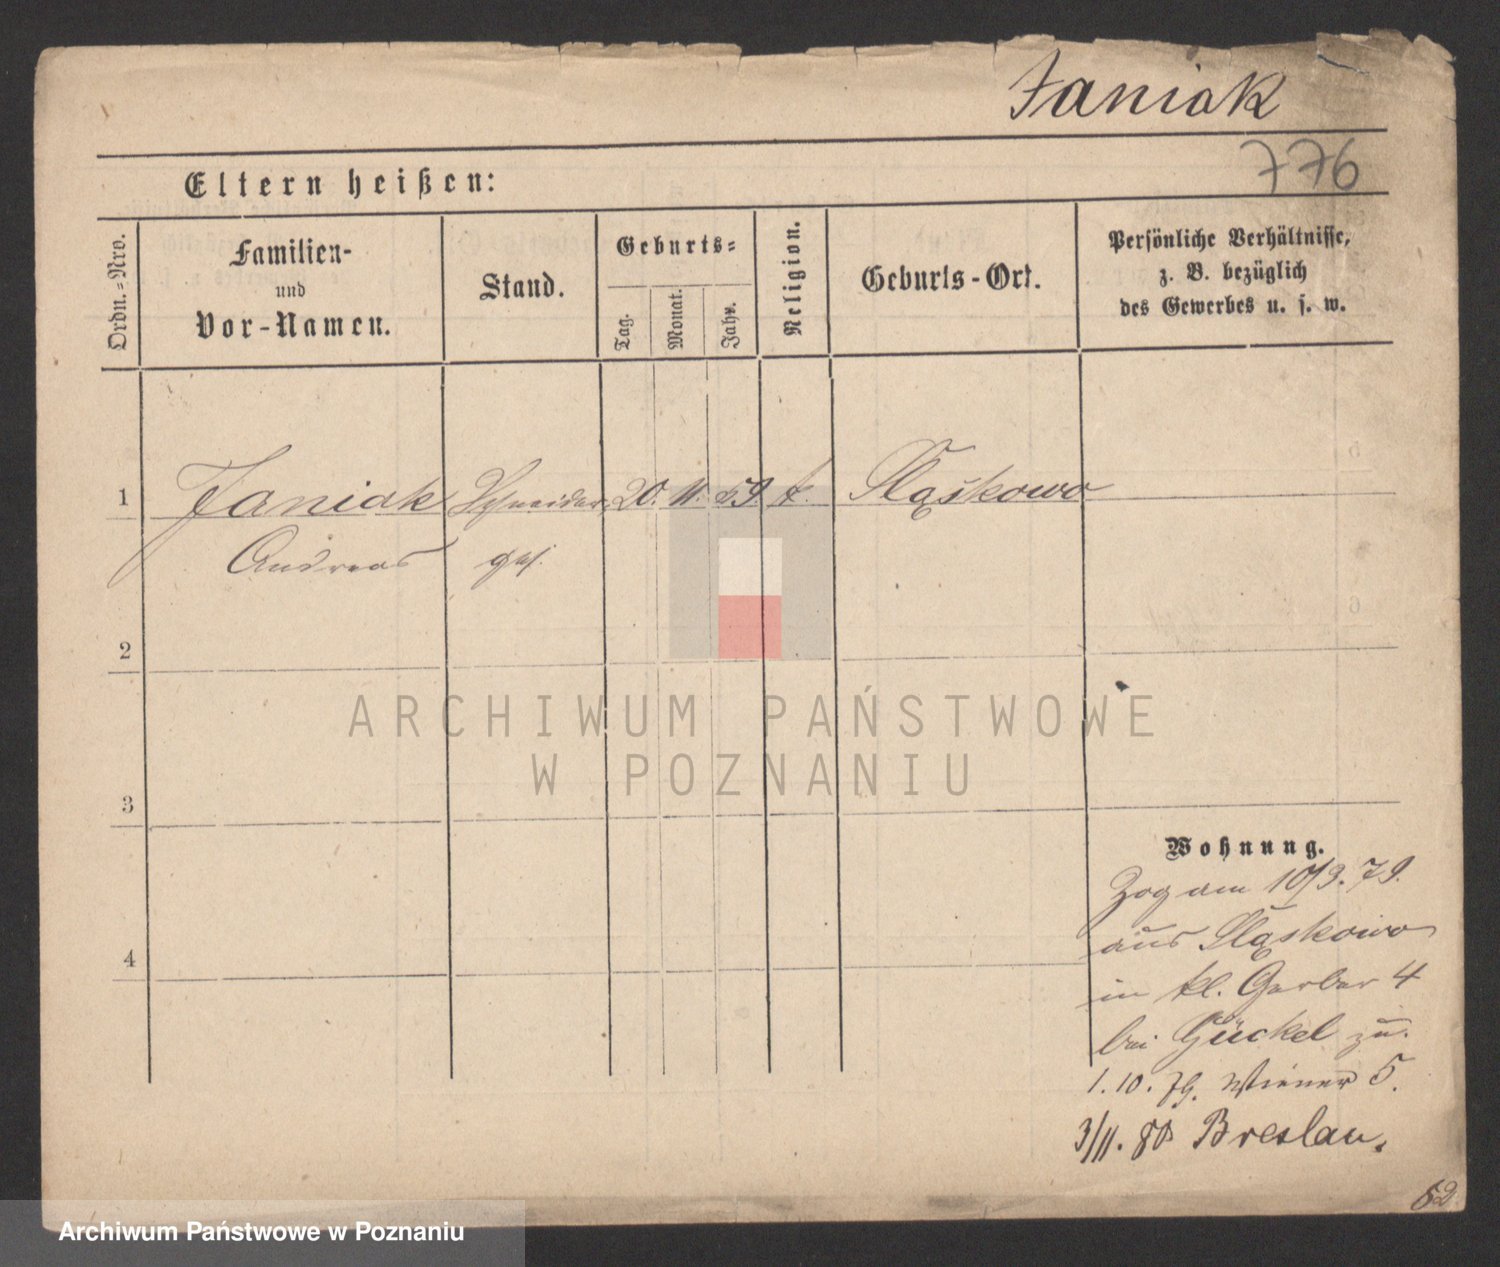 Janiak
776
Eltern heißen:
Ordn.-Nro.
Familien-
und
Vor-Namen.
Stand.
Geburts-
Tag.
Monat.
Jahr.
Religion.
Geburts-Ort.
Persönliche Verhältnisse,
z. B. bezüglich
des Gewerbes u. s. w.
1 Janiak Schneider 20. 11. 59. k. Sląskowo
Andreas ges.
2
3
4
Wohnung.
Zog am 10/3. 79.
aus Sląskowo
in kl. Gerber 4
bei Gückel zu.
1. 10. 79. Wiener 5.
3/11. 80 Breslau.
52
ARCHIWUM PAŃSTWOWE
W POZNANIU
Archiwum Państwowe w Poznaniu